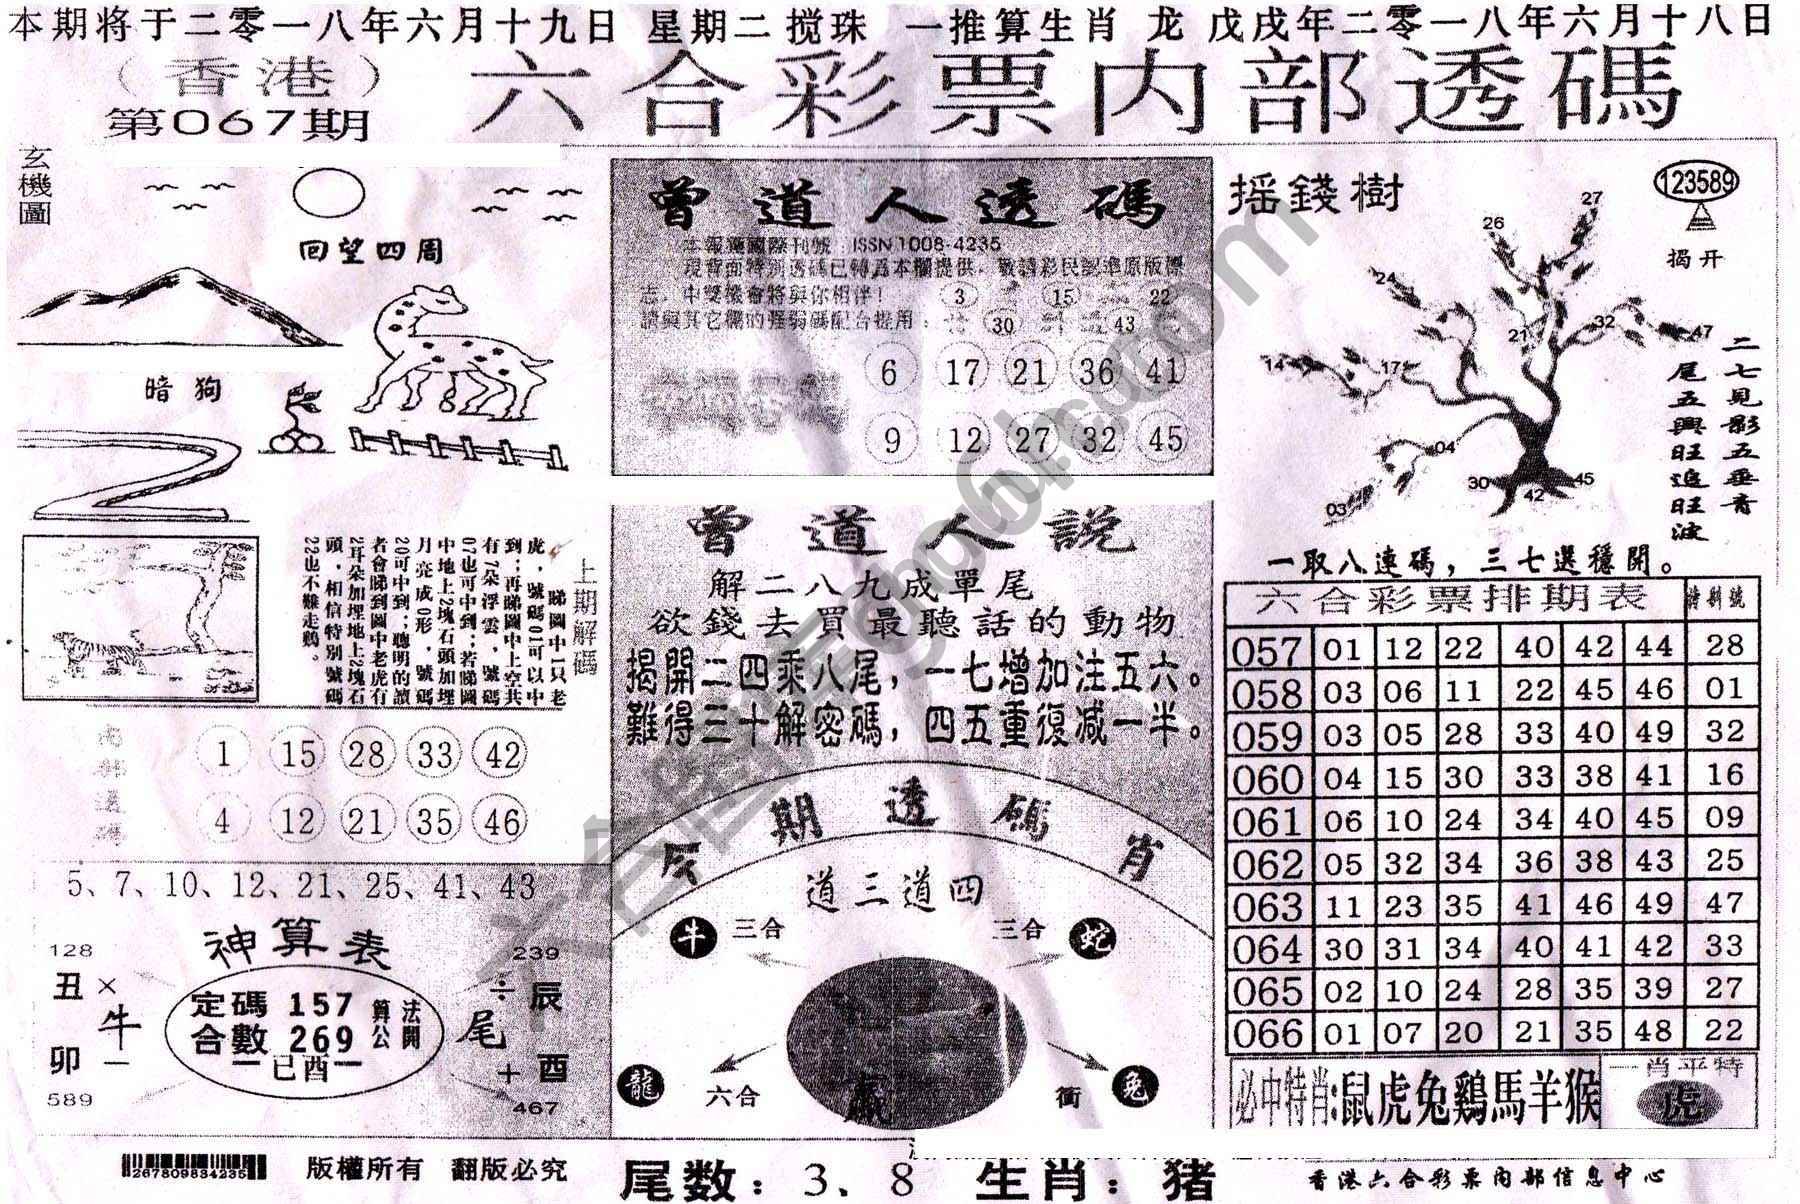 本期将于二零一八年六月十九日 星期二 搅珠 一推算生肖 龙 戊戌年二零一八年六月十八日
(香港)
第067期
六合彩票内部透碼
玄機圖
回望四周
暗狗
上期解碼
睇圖中1只老
虎，號碼01可以中
到；再睇圖中上空共
有7朵浮雲，號碼
07也可中到；若睇圖
中地上2塊石頭加埋
月亮成0形，號碼
20可中到；聰明的讀
者會睇到圖中老虎有
2耳朵加埋地上2塊石
頭，相信特別號碼
22也不難走鷄。
1 15 28 33 42
4 12 21 35 46
5、7、10、12、21、25、41、43
神算表
128
239
丑 × 牛
÷ 辰
定碼 157
合數 269
算公
法開
一巳酉一
尾
卯 一
+ 酉
589
467
曾道人透碼
本報運國際刊號：ISSN1008-4235
現背面特別透碼已轉爲本欄提供，敬請彩民認準原版標
志，中獎機會將與你相伴！ 3 15 22
請與其它欄的强弱碼配合提用： 30 43
6 17 21 36 41
9 12 27 32 45
曾道人説
解二八九成單尾
欲錢去買最聽話的動物
揭開二四乘八尾，一七增加注五六。
難得三十解密碼，四五重復减一半。
今期透碼肖
道三道四
牛 三合 三合 蛇
龍 六合 衝 兔
摇錢樹
123589
揭开
27
26
24
21
32
47
14
17
04
30
42
45
03
二七見影五垂青
尾五興旺追旺波
一取八連碼，三七選穩開。
六合彩票排期表 特别號
057 01 12 22 40 42 44 28
058 03 06 11 22 45 46 01
059 03 05 28 33 40 49 32
060 04 15 30 33 38 41 16
061 06 10 24 34 40 45 09
062 05 32 34 36 38 43 25
063 11 23 35 41 46 49 47
064 30 31 34 40 41 42 33
065 02 10 24 28 35 39 27
066 01 07 20 21 35 48 22
必中特肖:鼠虎兔鷄馬羊猴
一肖平特
虎
12678098342351
版權所有 翻版必究
尾数：3、8 生肖：猪
香港六合彩票内部信息中心